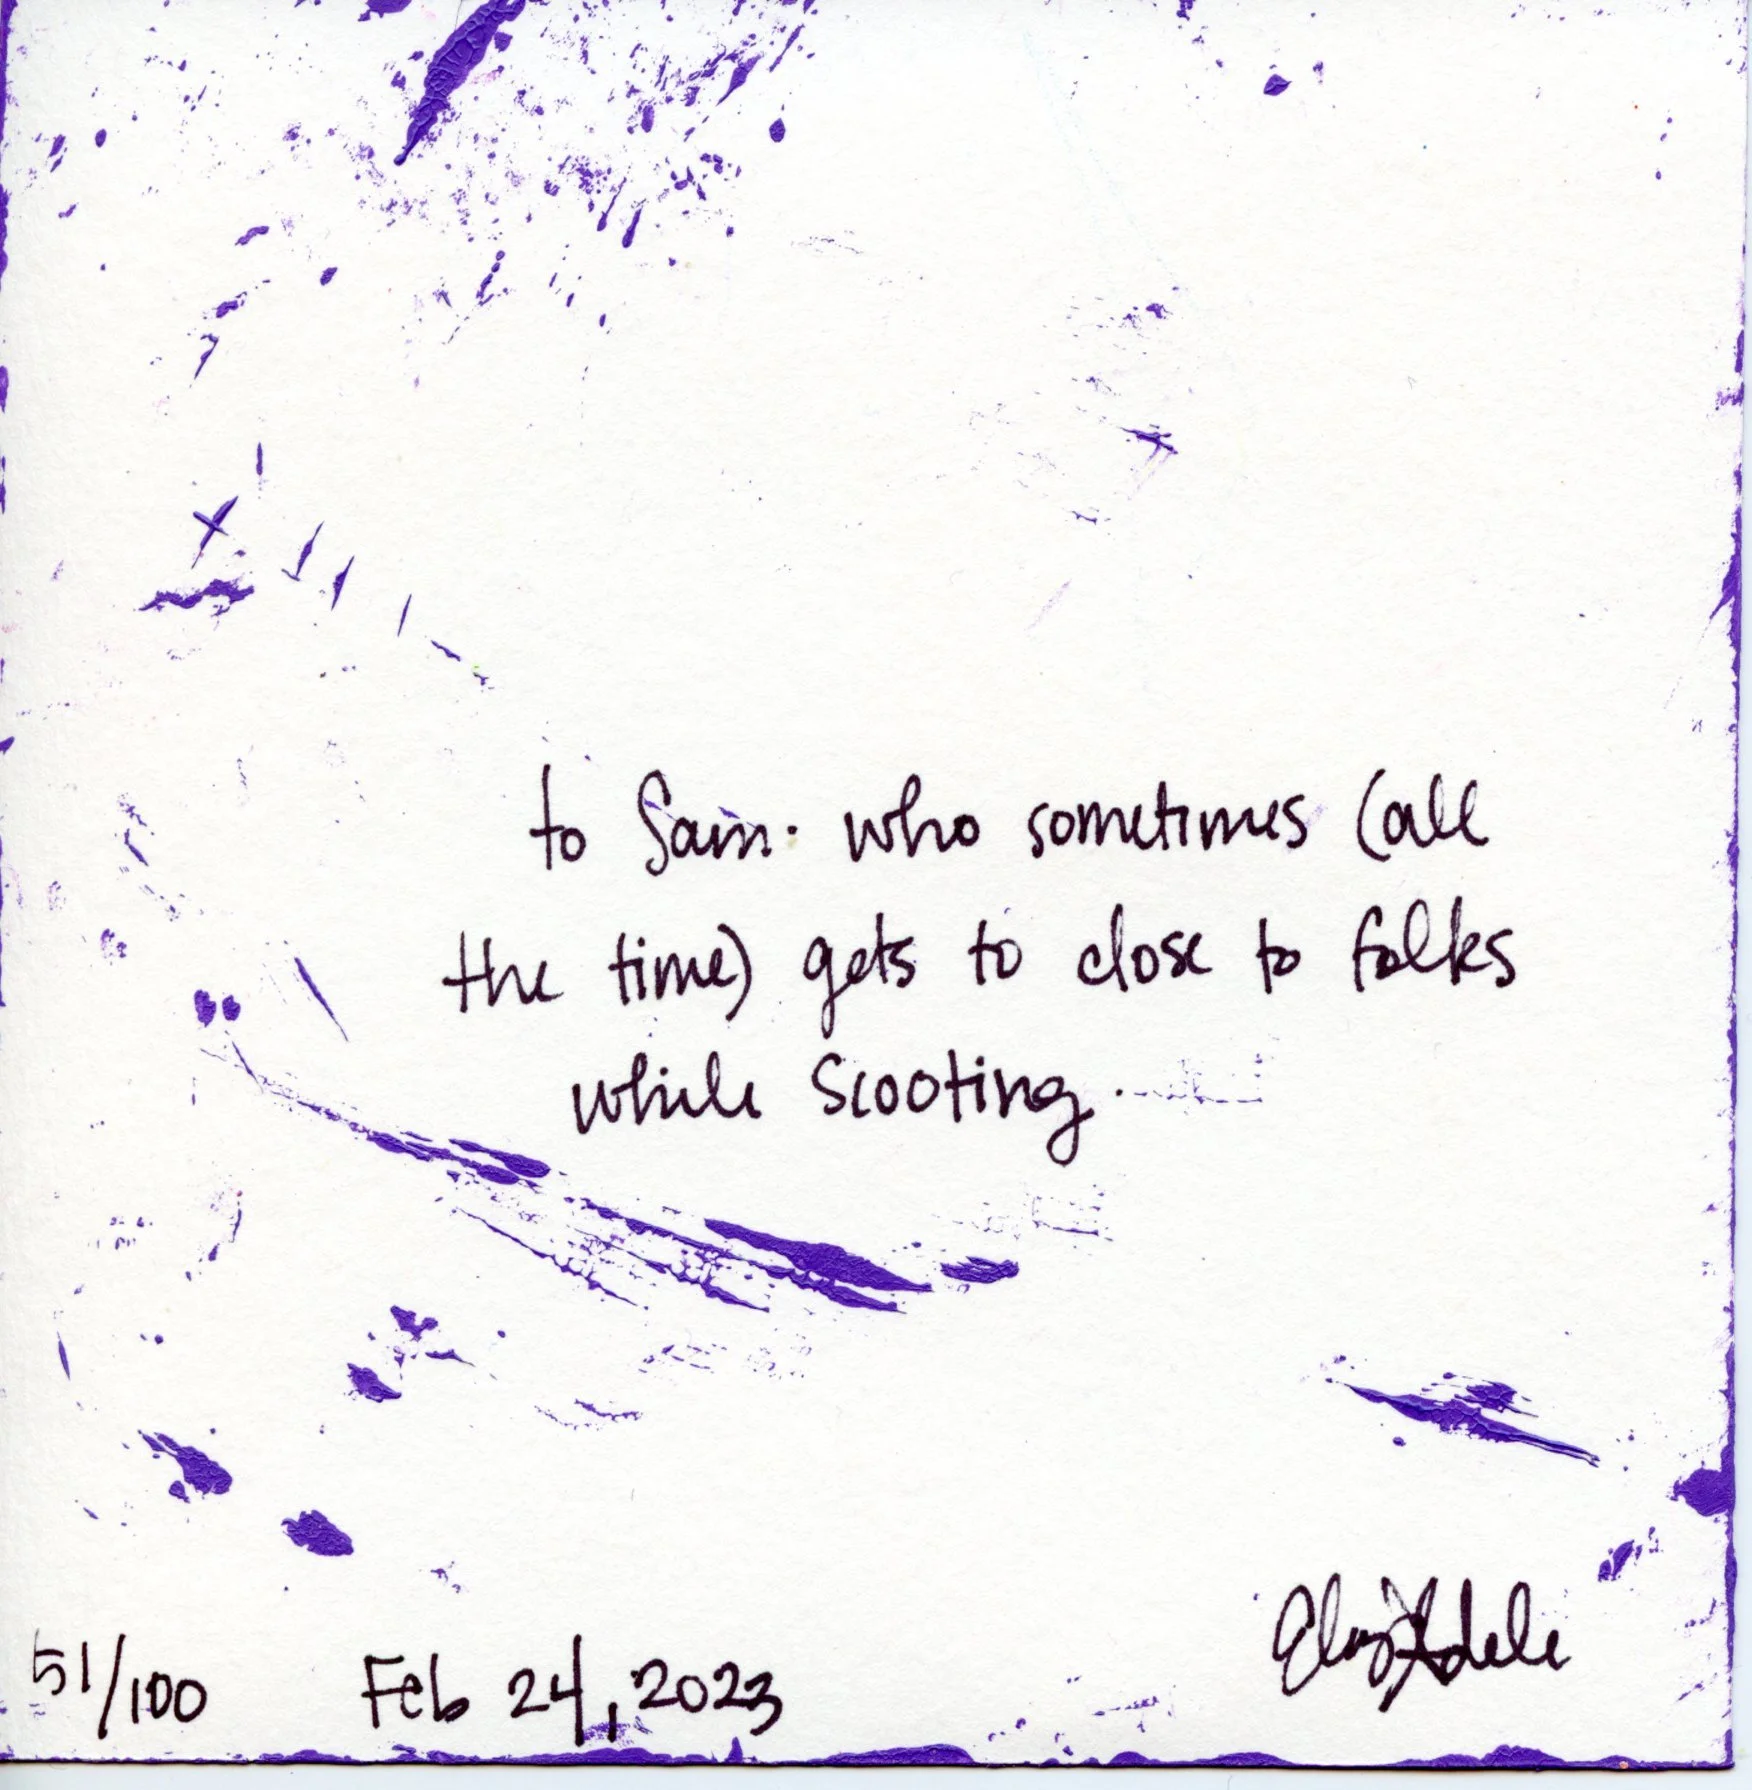 to Sam. who sometimes (all
the time) gets to close to folks
while scooting.
51/100 Feb 24, 2023